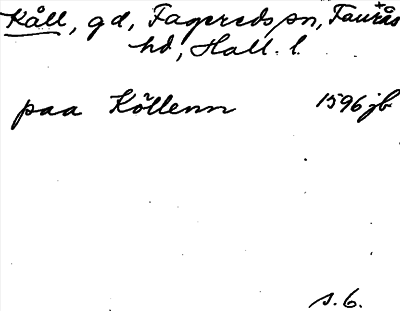 Kåll, gd, Fagereds sn, Faurås
hd, Hall. l.
paa Köllenn 1596 jb
s. 6.